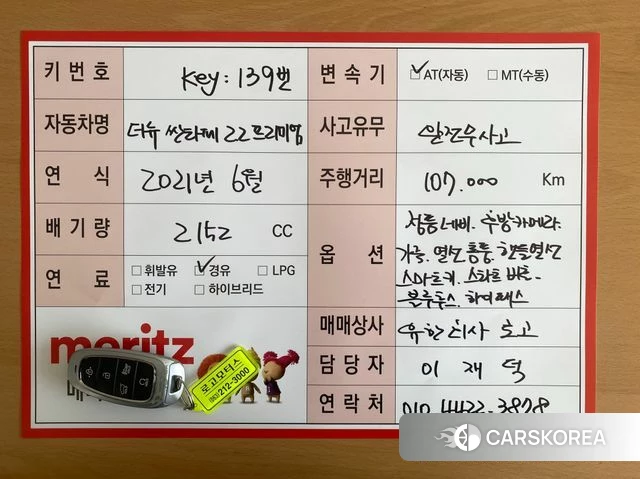 키 번호 Key: 139번
변속기 ☑AT(자동) □MT(수동)
자동차명 더뉴 싼타페 2.2 프리미엄
사고유무 완전무사고
연식 2021년 6월
주행거리 107.000 Km
배기량 2152 CC
옵션 정품네비. 후방카메라.
가죽. 열선통풍. 핸들열선
스마트키. 스타트 버튼.
블루투스. 하이패스
연료 □휘발유 ☑경유 □LPG
□전기 □하이브리드
매매상사 유한회사 로고
담당자 이재덕
연락처 010 4422-3878
moritz
로고모터스
063)212-3000
CARSKOREA